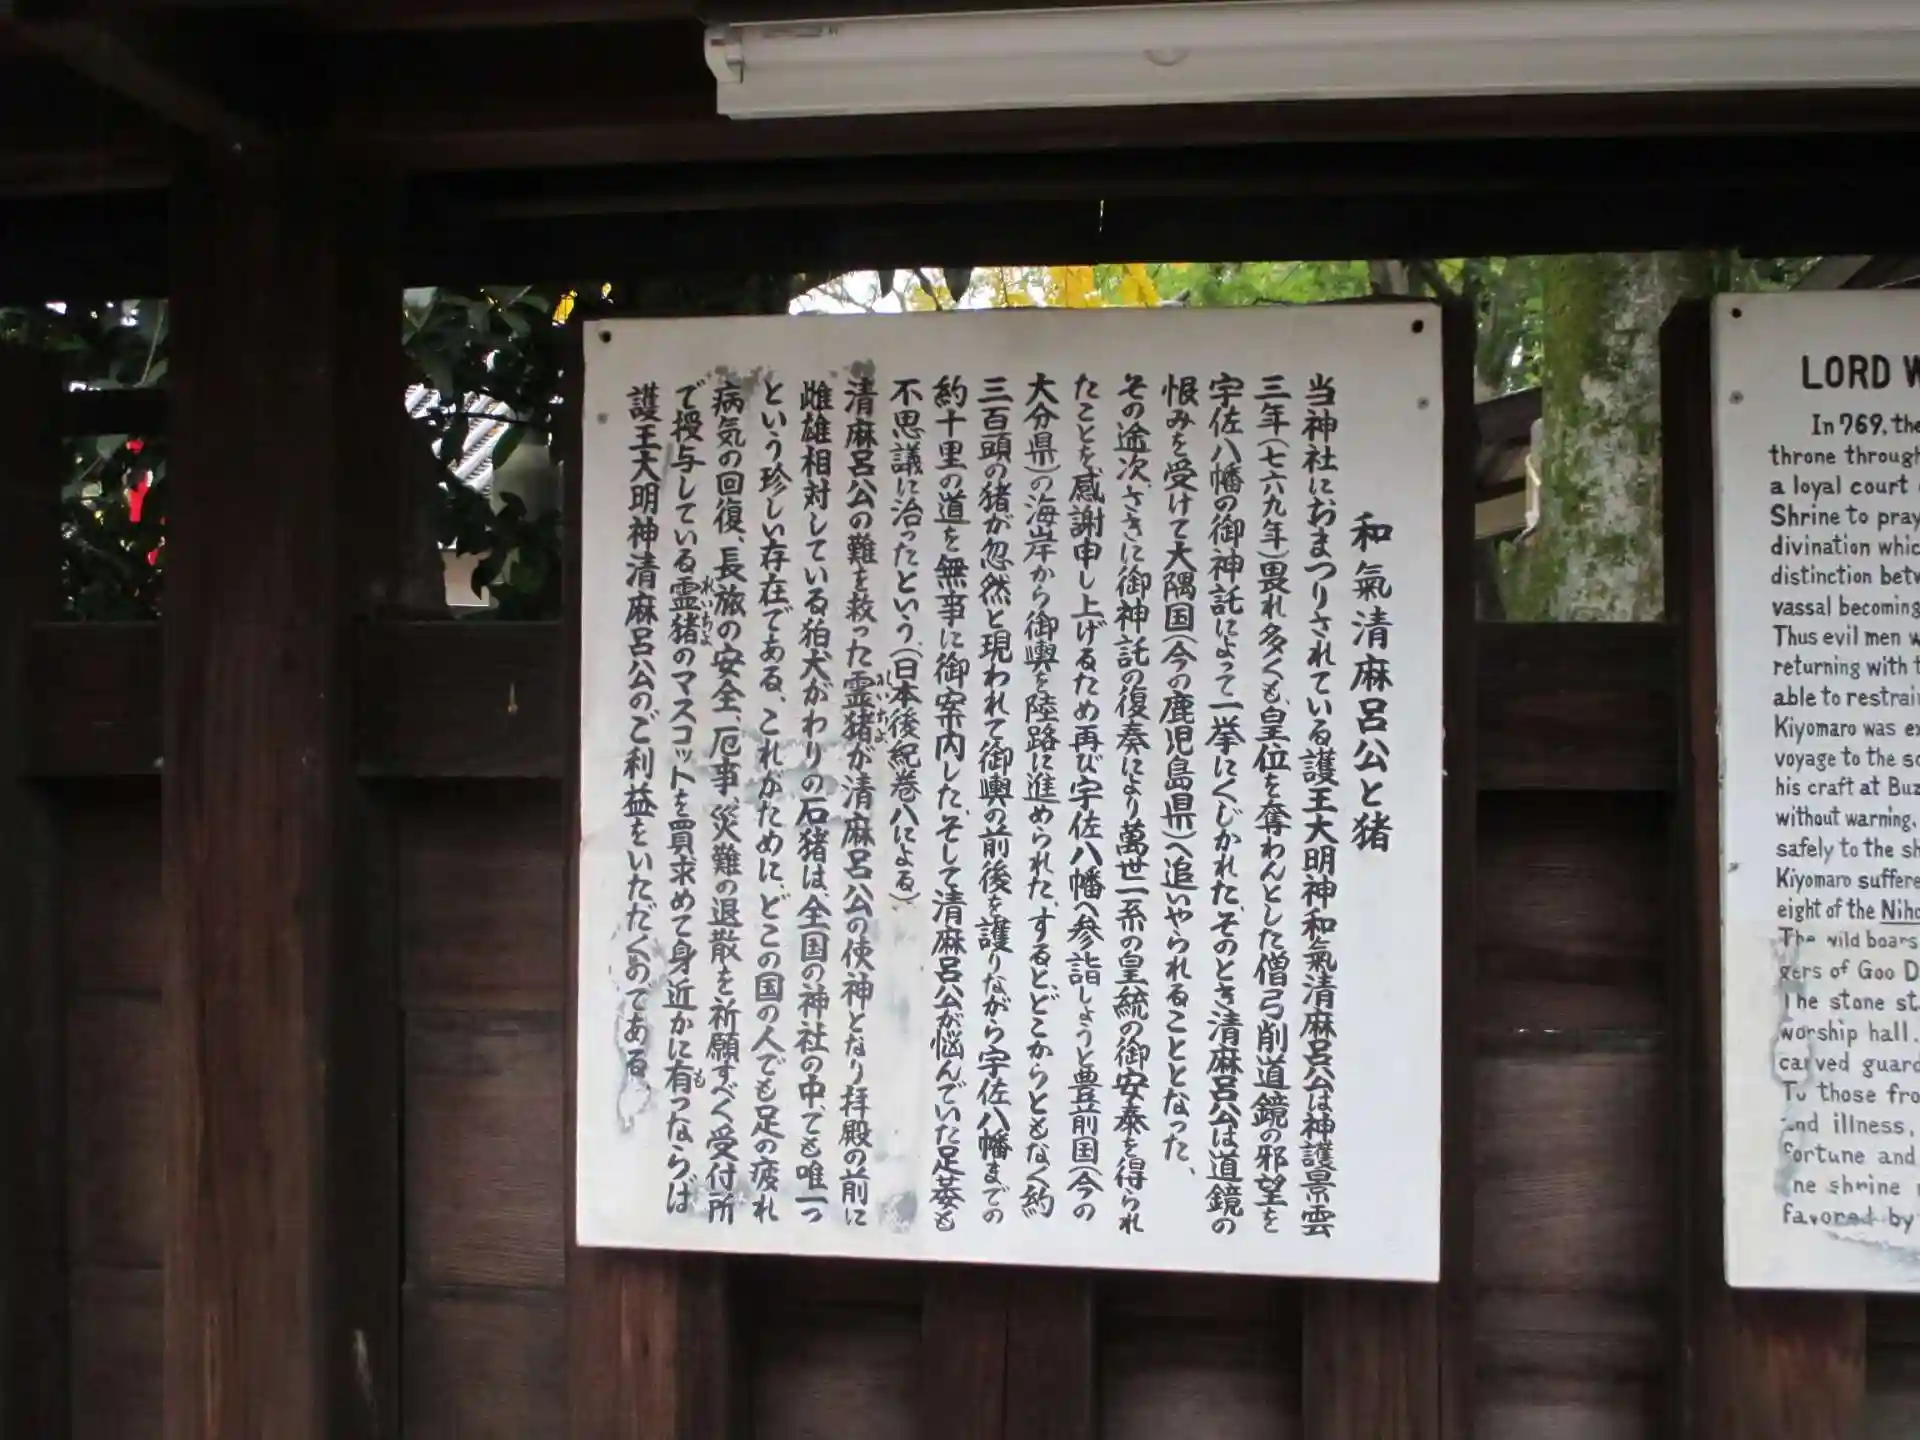 和氣清麻呂公と猪
当神社におまつりされている護王大明神和氣清麻呂公は神護景雲
三年(七六九年)畏れ多くも、皇位を奪わんとした僧弓削道鏡の邪望を
宇佐八幡の御神託によって一挙にくじかれた。そのとき清麻呂公は道鏡の
恨みを受けて大隅国(今の鹿児島県)へ追いやられることとなった、
その途次、さきに御神託の復奏により萬世一系の皇統の御安泰を得られ
たことを感謝申し上げるため再び宇佐八幡へ参詣しようと豊前国(今の
大分県)の海岸から御輿を陸路に進められた、すると、どこからともなく約
三百頭の猪が忽然と現われて御輿の前後を護りながら宇佐八幡までの
約十里の道を無事に御案内した、そして清麻呂公が悩んでいた足萎も
不思議に治ったという、(日本後紀巻八による)
清麻呂公の難を救った霊猪が清麻呂公の使神となり拝殿の前に
れいちよ
雌雄相対している狛犬がわりの石猪は、全国の神社の中でも唯一つ
という珍しい存在である、これがために、どこの国の人でも足の疲れ
病気の回復、長旅の安全、厄事、災難の退散を祈願すべく受付所
で授与している霊猪のマスコットを買求めて身近かに有つならば
れいちよ
も
護王大明神清麻呂公のご利益をいただくのである、
LORD W
In 769, the
throne through
a loyal court
Shrine to pray
divination whic
distinction betw
vassal becoming
Thus evil men w
returning with t
able to restrain
Kiyomaro was ex
voyage to the so
his craft at Buz
without warning,
safely to the sh
Kiyomaro suffere
eight of the Niho
The wild boars
gers of Goo D
The stone st
worship hall.
carved guard
To those fro
and illness,
fortune and
ne shrine
favored by